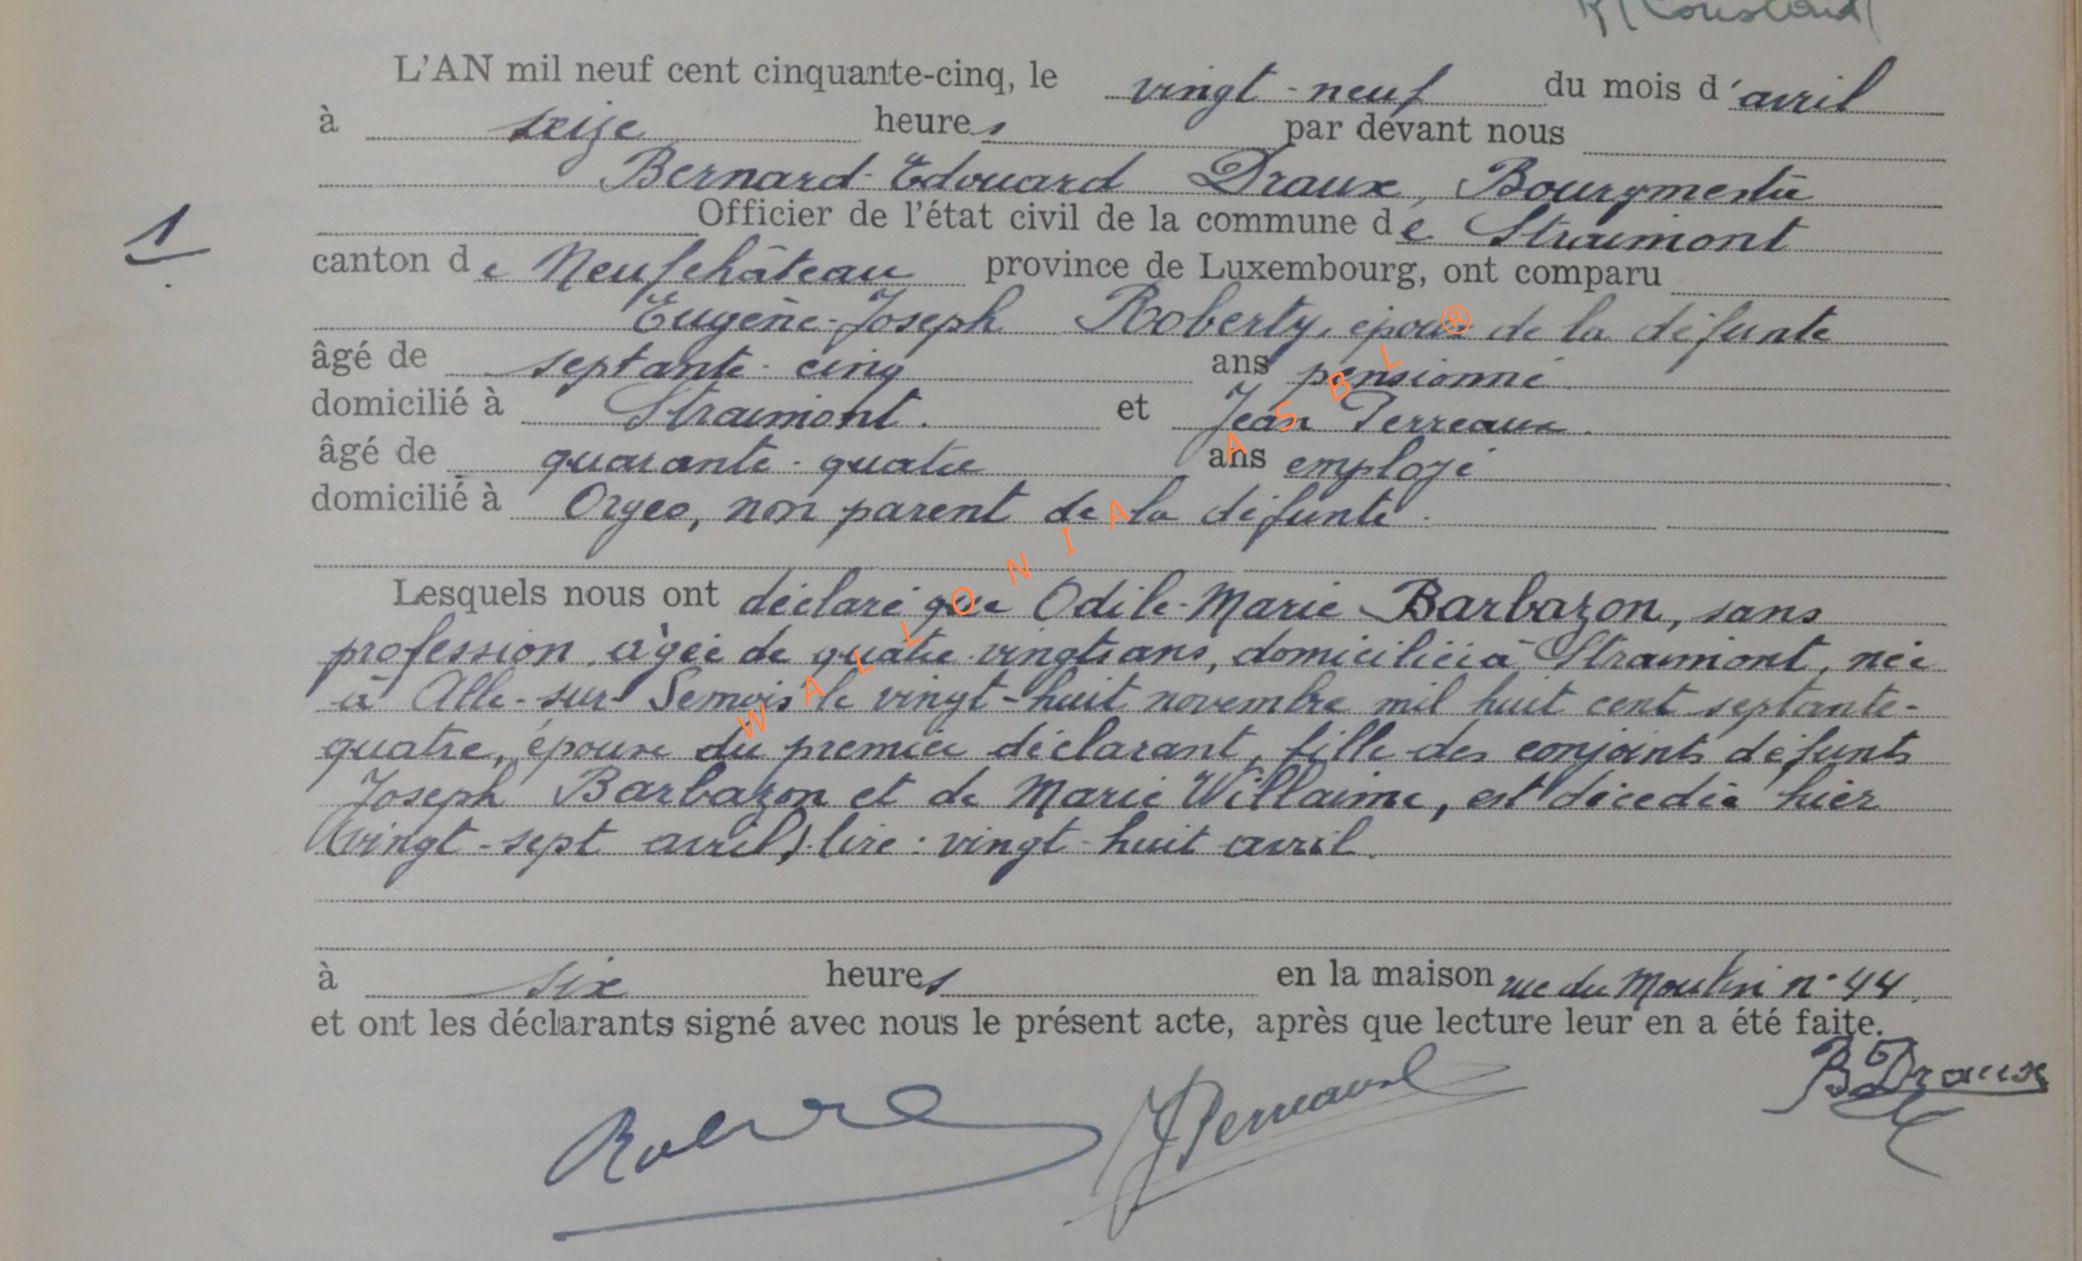 L'AN mil neuf cent cinquante-cinq, le vingt-neuf du mois d'avril
à seize heures par devant nous
Bernard-Edouard Draux, Bourgmestre
1 Officier de l'état civil de la commune de Straimont
canton de Neufchâteau province de Luxembourg, ont comparu
Eugène-Joseph Roberty, époux de la défunte
âgé de septante-cinq ans pensionné.
domicilié à Straimont. et Jean Perreaux.
âgé de quarante-quatre ans employé
domicilié à Orgeo, non parent de la défunte.
Lesquels nous ont déclaré que Odile-Marie Barbazon, sans
profession, âgée de quatre-vingts ans, domiciliée à Straimont, née
à Alle-sur-Semois le vingt-huit novembre mil huit cent septante-
quatre, épouse du premier déclarant, fille des conjoints défunts
Joseph Barbazon et de Marie Willaime, est décédée hier
(vingt-sept avril) lire : vingt-huit avril.
à six heures en la maison rue du Moulin n° 44.
et ont les déclarants signé avec nous le présent acte, après que lecture leur en a été faite.
JPerreaux B Draux
WALLONIA ASBL ®